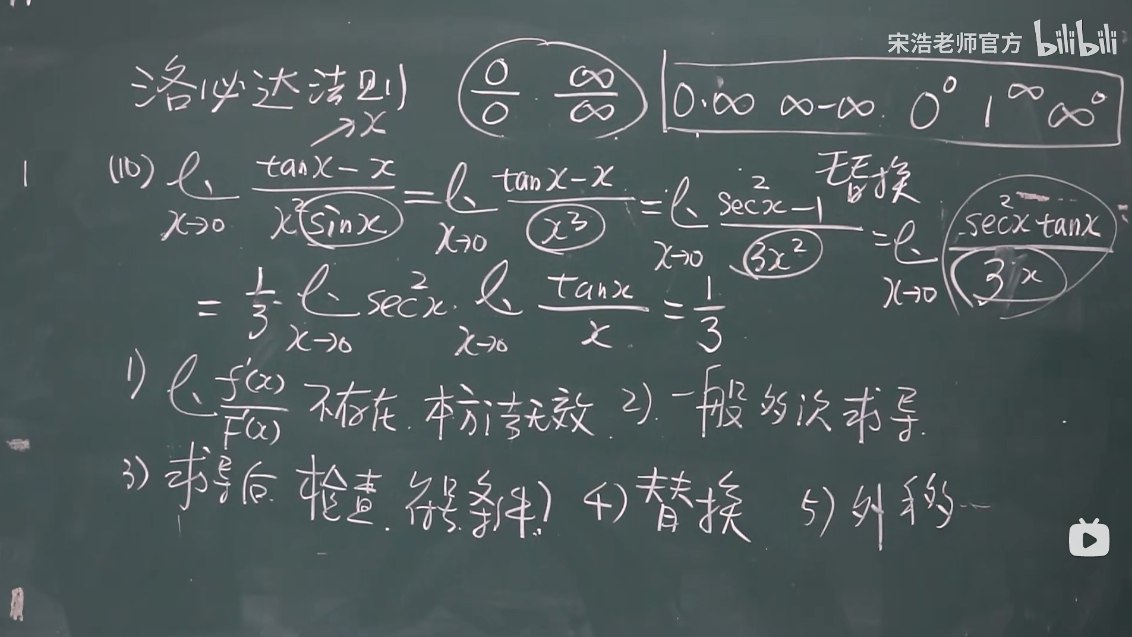 宋浩老师官方 bilibili
洛必达法则 0/0 ∞/∞ 0·∞ ∞-∞ 0^0 1^∞ ∞^0
→x
替换
1 (10) lim_{x→0} (tanx-x)/(x²sinx) = lim_{x→0} (tanx-x)/x³ = lim_{x→0} (sec²x-1)/(3x²) = lim_{x→0} (sec²x tanx)/(3x)
= 1/3 · lim_{x→0} sec²x · lim_{x→0} tanx/x = 1/3
1) lim f'(x)/F'(x) 不存在.本方法无效. 2). 一般多次求导.
3) 求导后.检查.符号条件) 4) 替换 5) 外移的…